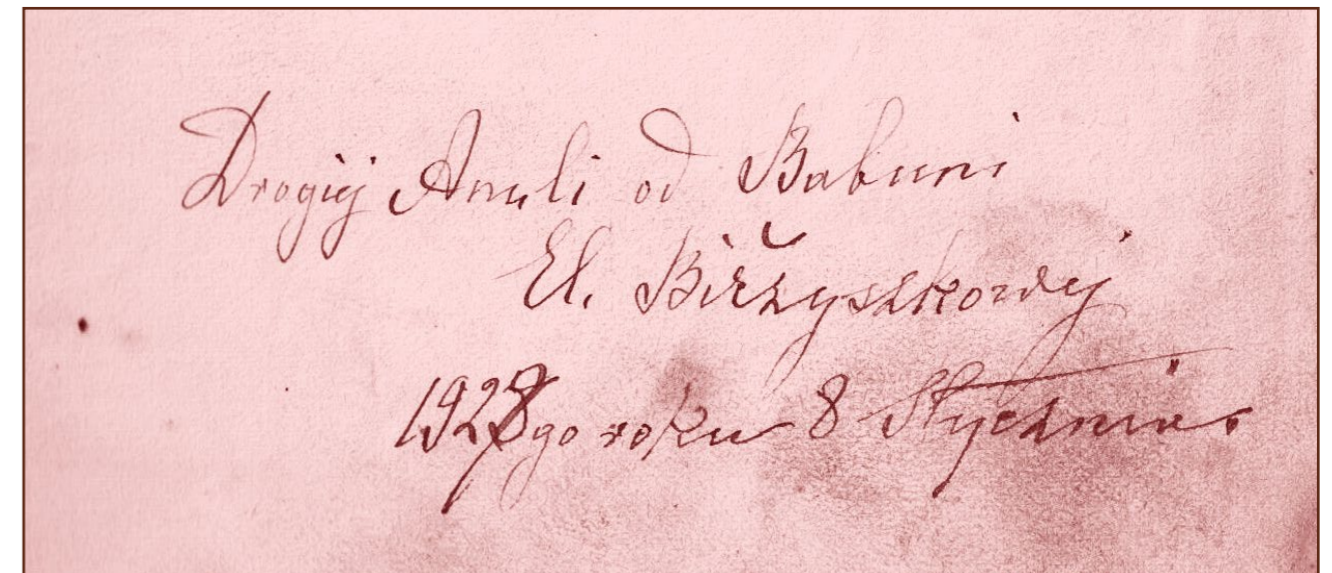 Drogiej Anuli od Babuni
El. Biržyszkowej
1928go roku 8 Stycznia.